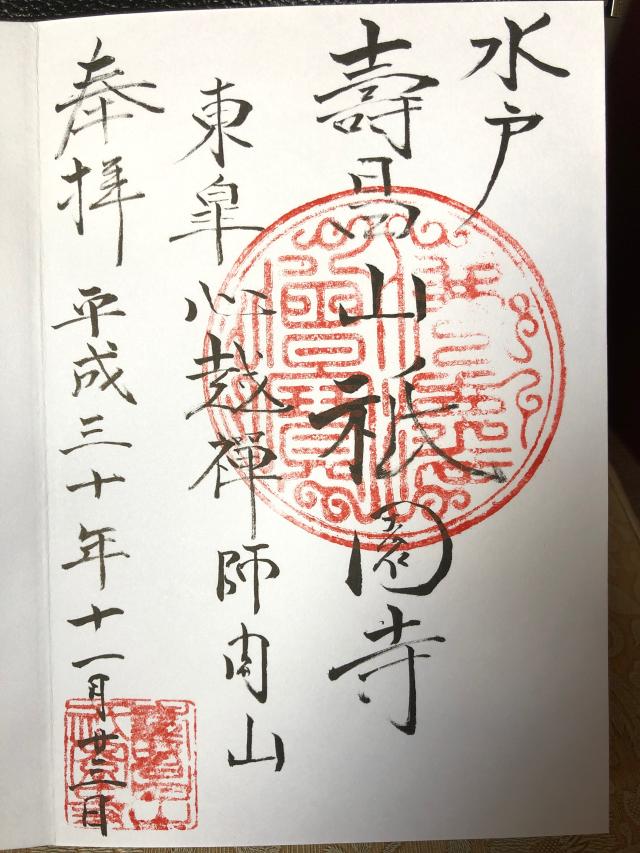 水戸
壽昌山祇園寺
東皐心越禪師開山
奉拝 平成三十年十一月廿三日